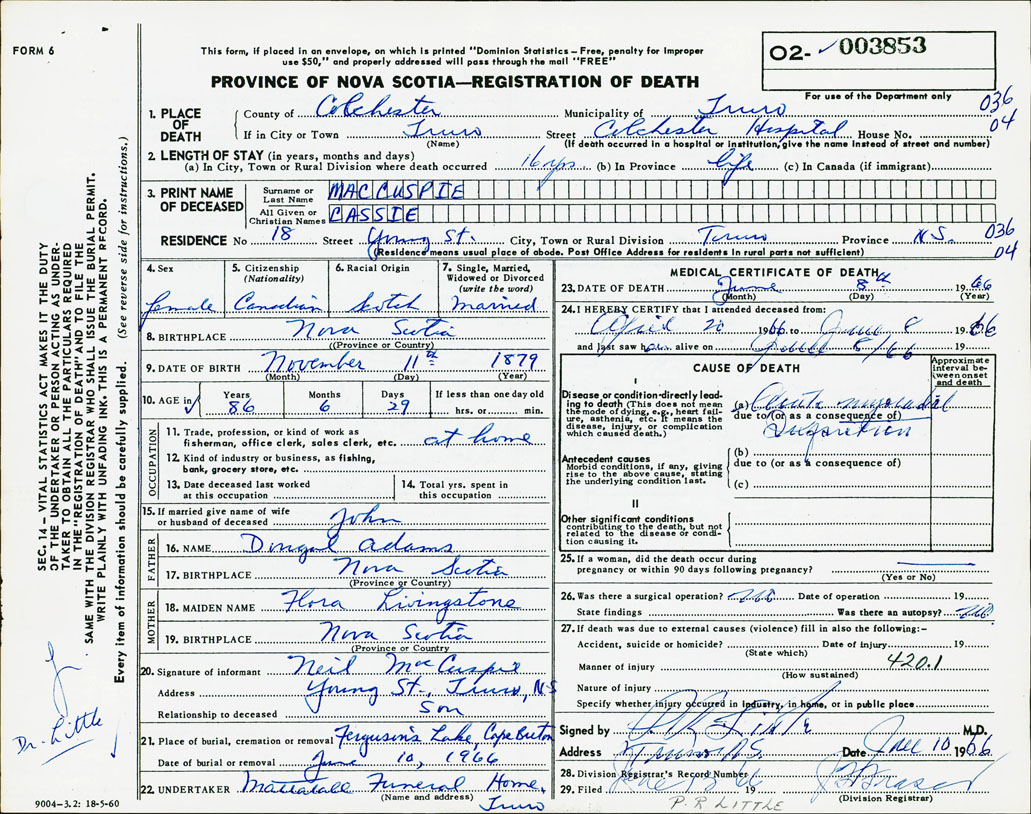 FORM 6
This form, if placed in an envelope, on which is printed "Dominion Statistics – Free, penalty for improper
use $50," and properly addressed will pass through the mail "FREE"
O2- ✓003853
PROVINCE OF NOVA SCOTIA—REGISTRATION OF DEATH
For use of the Department only
036
04
1. PLACE OF DEATH
County of Colchester Municipality of Truro
If in City or Town Truro Street Colchester Hospital House No.
(Name) (If death occurred in a hospital or institution, give the name instead of street and number)
2. LENGTH OF STAY (in years, months and days)
(a) In City, Town or Rural Division where death occurred 16 yrs. (b) In Province life (c) In Canada (if immigrant)
3. PRINT NAME OF DECEASED
Surname or Last Name MACCUSPIE
All Given or Christian Names CASSIE
RESIDENCE No 18 Street Young St. City, Town or Rural Division Truro Province N.S. 036
(Residence means usual place of abode. Post Office Address for residents in rural parts not sufficient) 04
4. Sex female
5. Citizenship (Nationality) Canadian
6. Racial Origin Scotch
7. Single, Married, Widowed or Divorced (write the word) Married
8. BIRTHPLACE Nova Scotia
(Province or Country)
9. DATE OF BIRTH November 11th 1879
(Month) (Day) (Year)
10. AGE in ✓ Years 86 Months 6 Days 29 If less than one day old hrs. or min.
OCCUPATION
11. Trade, profession, or kind of work as
fisherman, office clerk, sales clerk, etc. at home
12. Kind of industry or business, as fishing,
bank, grocery store, etc.
13. Date deceased last worked
at this occupation
14. Total yrs. spent in
this occupation
15. If married give name of wife
or husband of deceased John
FATHER
16. NAME Dougal Adams
17. BIRTHPLACE Nova Scotia
(Province or Country)
MOTHER
18. MAIDEN NAME Flora Livingstone
19. BIRTHPLACE Nova Scotia
(Province or Country
20. Signature of informant Neil MacCuspie
Address Young St., Truro, N.S
Relationship to deceased Son
21. Place of burial, cremation or removal Ferguson's Lake, Cape Breton
Date of burial or removal June 10, 1966
22. UNDERTAKER Mattatall Funeral Home,
(Name and address) Truro
9004-3.2: 18-5-60
MEDICAL CERTIFICATE OF DEATH
23. DATE OF DEATH June 8th 1966
(Month) (Day) (Year)
24. I HEREBY CERTIFY that I attended deceased from:
April 20 1966 to June 8 1966
and last saw h alive on 8/66 19
CAUSE OF DEATH
Approximate
interval be-
tween onset
and death
I
Disease or condition directly lead-
ing to death (This does not mean
the mode of dying, e.g., heart fail-
ure, asthenia, etc. It means the
disease, injury, or complication
which caused death.)
(a) Acute myocardial
due to (or as a consequence of)
Infarction
Antecedent causes
Morbid conditions, if any, giving
rise to the above cause, stating
the underlying condition last.
(b)
due to (or as a consequence of)
(c)
II
Other significant conditions
contributing to the death, but not
related to the disease or condi-
tion causing it.
25. If a woman, did the death occur during
pregnancy or within 90 days following pregnancy?
(Yes or No)
26. Was there a surgical operation? no Date of operation 19
State findings Was there an autopsy? no
27. If death was due to external causes (violence) fill in also the following:–
Accident, suicide or homicide? Date of injury 19
(State which)
420.1
Manner of injury
(How sustained)
Nature of injury
Specify whether injury occurred in industry, in home, or in public place
Signed by P R Little M.D.
Address Truro N.S. Date June 10 1966
28. Division Registrar's Record Number
29. Filed 19
(Division Registrar)
P. R LITTLE
SEC. 14 – VITAL STATISTICS ACT MAKES IT THE DUTY
OF THE UNDERTAKER OR PERSON ACTING AS UNDER-
TAKER TO OBTAIN ALL THE PARTICULARS REQUIRED
IN THE "REGISTRATION OF DEATH" AND TO FILE THE
SAME WITH THE DIVISION REGISTRAR WHO SHALL ISSUE THE BURIAL PERMIT.
WRITE PLAINLY WITH UNFADING INK. THIS IS A PERMANENT RECORD.
Every item of information should be carefully supplied. (See reverse side for instructions.)
Dr. Little